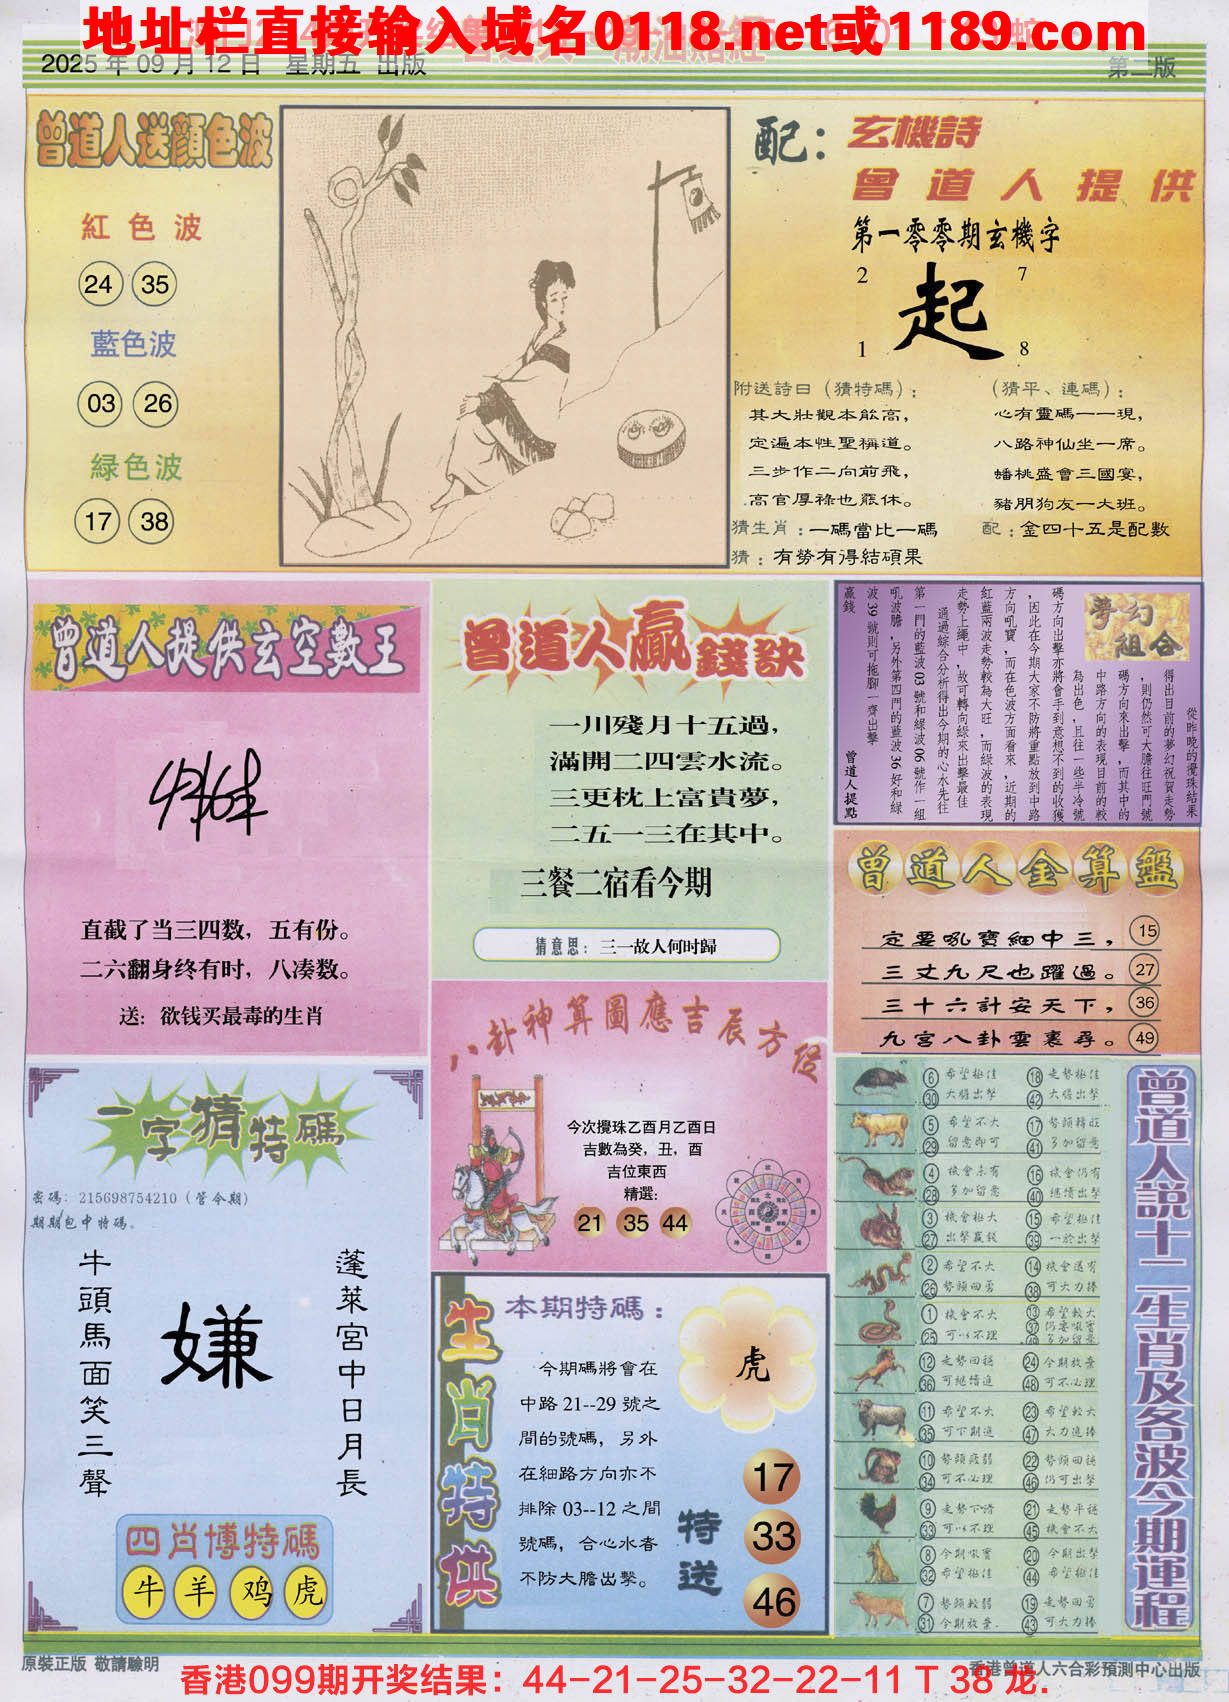 地址栏直接输入域名0118.net或1189.com
2025年09月12日 星期五 出版
第二版
曾道人送顏色波
紅色波
24 35
藍色波
03 26
緑色波
17 38
配：玄機詩
曾道人提供
第一零零期玄機字
2 7
起
1 8
附送詩曰（猜特碼）：
其大壯觀本飲高，
定遍本性聖稱道。
三步作二向前飛，
高官厚祿也蔴休。
猜生肖：一碼當比一碼
猜：有勞有得結碩果
（猜平、連碼）：
心有靈碼一一現，
八路神仙坐一席。
蟠桃盛會三國宴，
豬朋狗友一大班。
配：金四十五是配數
曾道人提供玄空數王
直截了当三四数，五有份。
二六翻身终有时，八凑数。
送：欲钱买最毒的生肖
曾道人贏錢訣
一川殘月十五過，
滿開二四雲水流。
三更枕上富貴夢，
二五一三在其中。
三餐二宿看今期
猜意思：三一故人何时歸
夢幻組合
從昨晚的攪珠結果
得出目前的夢幻祝賀走勢
，則仍然可大膽往旺門號
碼方向來出擊，而其中的
中路方向的表現目前的較
為出色，且往一些半冷號
碼方向出擊亦將會手到意想不到的收獲
，因此在今期大家不防將重點放到中路
方向吼寶，而在色波方面看來，近期的
紅藍兩波走勢較為大旺，而綠波的表現
走勢上繩中，故可轉向綠來出擊最佳
通過綜合分析得出今期的心水先往
第一門的藍波03號和綠波06號作一組
吼波膽，另外第四門的藍波36好和綠
波39號則可拖腳一齊出擊
贏錢
曾道人提點
曾道人金算盤
定要吼寶細中三， 15
三丈九尺也躍過。 27
三十六計安天下， 36
九宮八卦雲裏尋。 49
八卦神算圖應吉辰方位
今次攪珠乙酉月乙酉日
吉數為癸，丑，酉
吉位東西
精選：
21 35 44
一字猜特碼
密碼：215698754210（管今期）
期期包中特碼。
牛頭馬面笑三聲
嫌
蓬萊宮中日月長
四肖博特碼
牛 羊 鸡 虎
生肖特供
本期特碼：
今期碼將會在
中路21--29號之
間的號碼，另外
在細路方向亦不
排除03--12之間
號碼，合心水者
不防大膽出擊。
虎
特送
17
33
46
曾道人説十二生肖及各波今期運程
6 30 希望極佳 大膽出擊 18 42 走勢極佳 大膽出擊
5 29 希望不大 留意即可 17 41 勢頭轉旺 多加留意
4 28 機會未有 多加留意 16 40 機會仍有 继續出擊
3 27 機會極大 出擊贏錢 15 39 希望極佳 一於出擊
2 26 希望不大 勢頭回落 14 38 機會還有 可大力捧
1 25 機會不大 可以不理 13 37 49 希望較大 仍要吼寶 多加留意
12 36 走勢回穩 可继續追 24 48 今期放棄 可不必理
11 35 希望不大 可下期追 23 47 希望較大 大力追捧
10 34 勢頭疲弱 可不必理 22 46 勢頭回穩 仍可出擊
9 33 走勢下滑 可以不理 21 45 走勢平穩 機會不大
8 32 今期吼寶 希望極佳 20 44 今期出擊 希望極佳
7 31 勢頭較弱 今期放棄 19 43 走勢回落 可大力捧
原裝正版 敬請驗明
香港曾道人六合彩預測中心出版
香港099期开奖结果：44-21-25-32-22-11 T 38 龙.